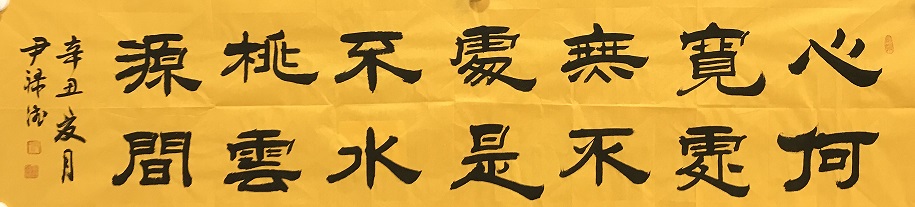 心寬無處不桃源
何處不是水雲間
辛丑夏月
尹